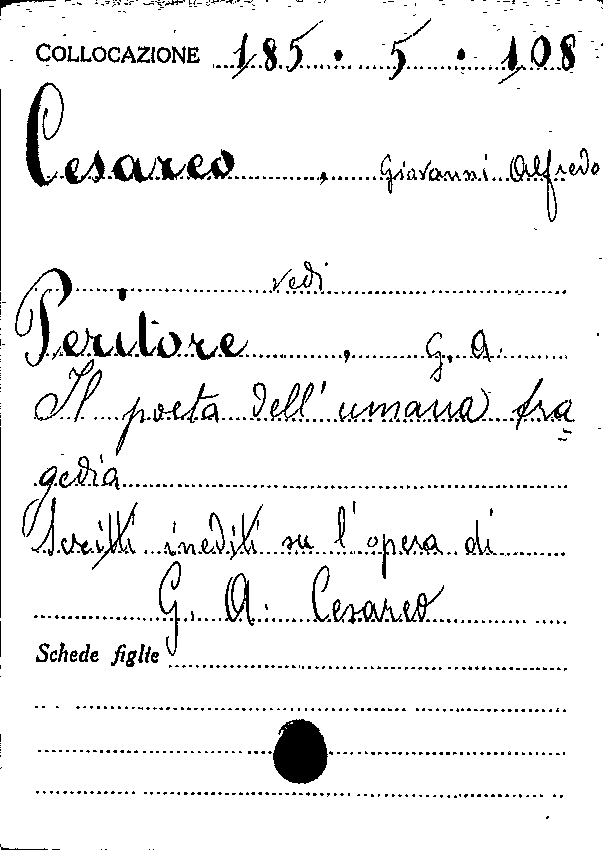 COLLOCAZIONE 185 . 5 . 108
Cesareo , Giovanni Alfredo
vedi
Peritore , G. A.
Il poeta dell'umana tra=
gedia
Scritti inediti su l'opera di
G. A. Cesareo
Schede figlie